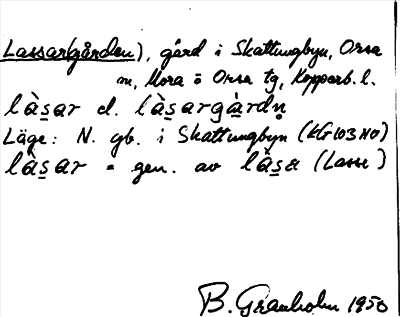 Lassar(gården), gård i Skattungbyn, Orsa
sn, Mora o Orsa tg, Kopparb. l.
là̱s̱ar el. là̱s̱argà̱rdn̥
Läge: N. gb. i Skattungbyn (KGr 103 NO)
là̱s̱ar = gen. av là̱s̱a (Lasse)
B. Granholm 1950